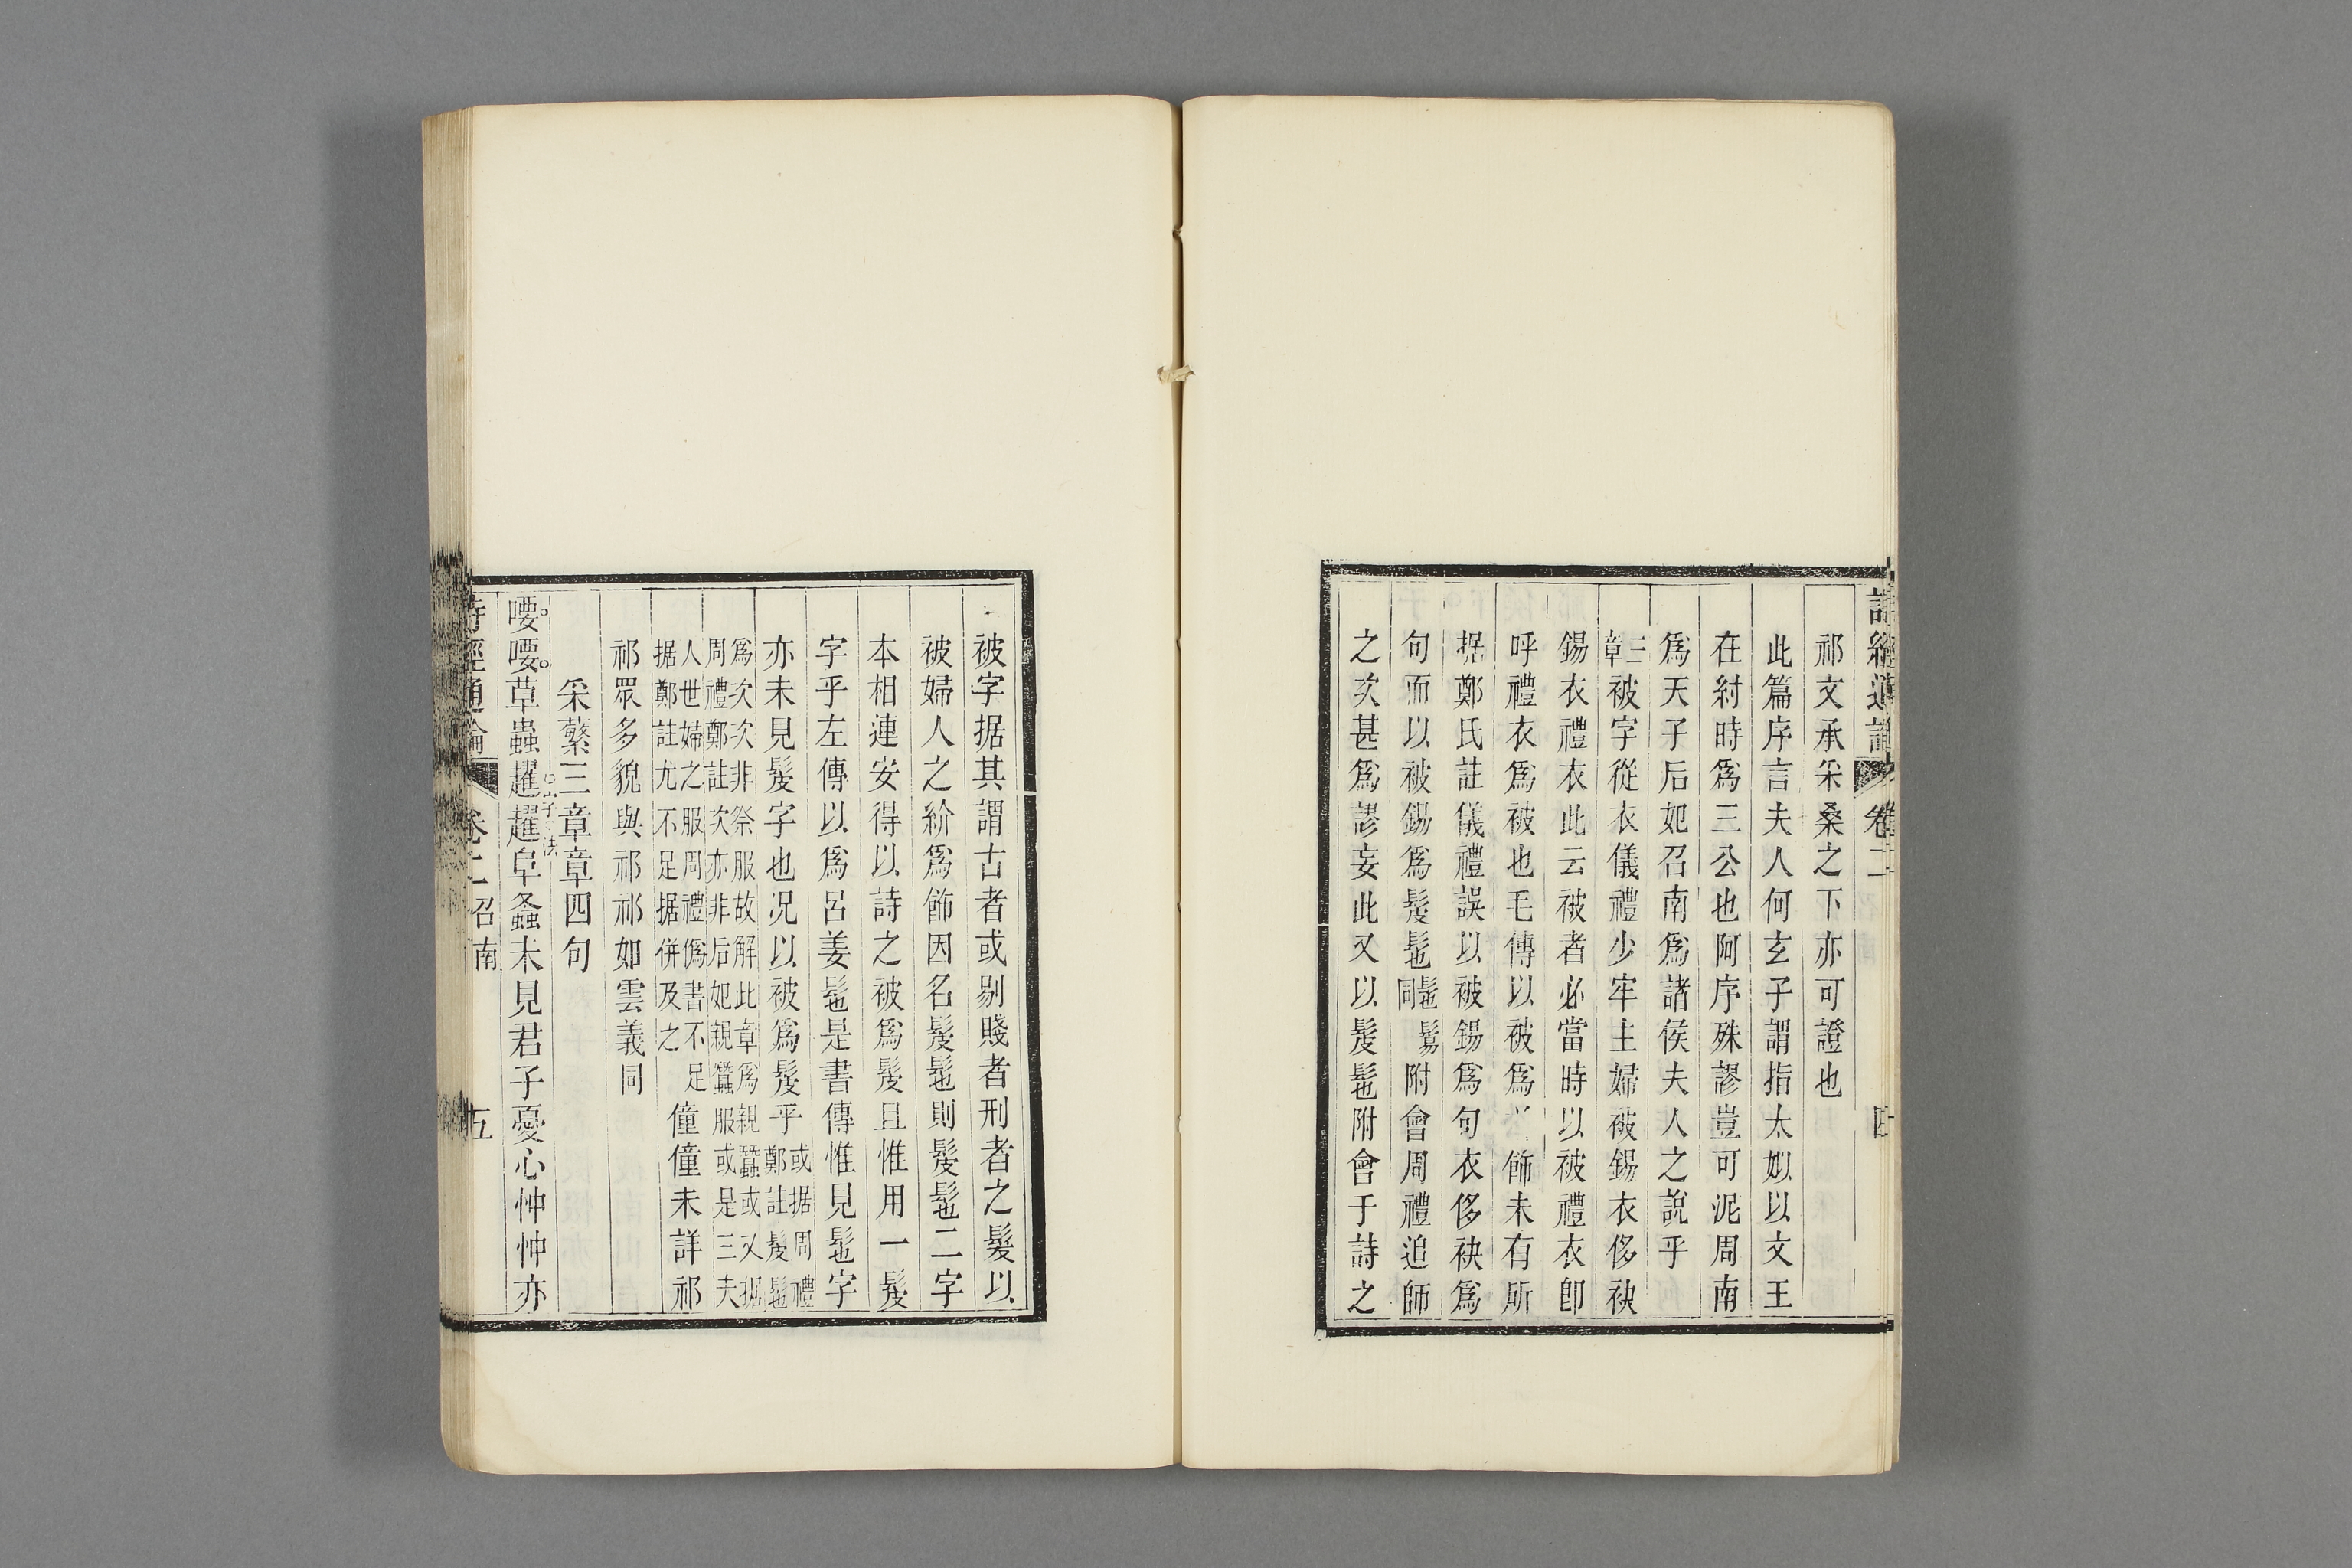 詩經通論 卷二
祁文承采桑之下亦可證也
此篇序言夫人何玄子謂指太姒以文王
在紂時爲三公也阿序殊謬豈可泥周南
爲天子后妃召南爲諸侯夫人之說乎
三章被字從衣儀禮少牢主婦被錫衣侈袂
錫衣禮衣此云被者必當時以被禮衣卽
呼禮衣爲被也毛傳以被爲飾未有所
据鄭氏註儀禮誤以被錫爲句衣侈袂爲
句而以被錫爲髲髢髢鬄同附會周禮追師
之次甚爲謬妄此又以髲髢附會于詩之
被字据其謂古者或剔賤者刑者之髮以
被婦人之紒爲飾因名髲髢則髲髢二字
本相連安得以詩之被爲髲且惟用一髲
字乎左傳以爲呂姜髢是書傳惟見髢字
亦未見髲字也況以被爲髲乎或据周禮鄭註髲髢
爲次次非祭服故解此章爲親蠶或又据
周禮鄭註次亦非后妃親蠶服或是三夫
人世婦之服周禮僞書不足
据鄭註尤不足据併及之
僮僮未詳祁
祁眾多貌與祁祁如雲義同
采蘩三章章四句
喓喓草蟲趯趯阜螽未見君子憂心忡忡亦
詩經通論 卷二 召南 五